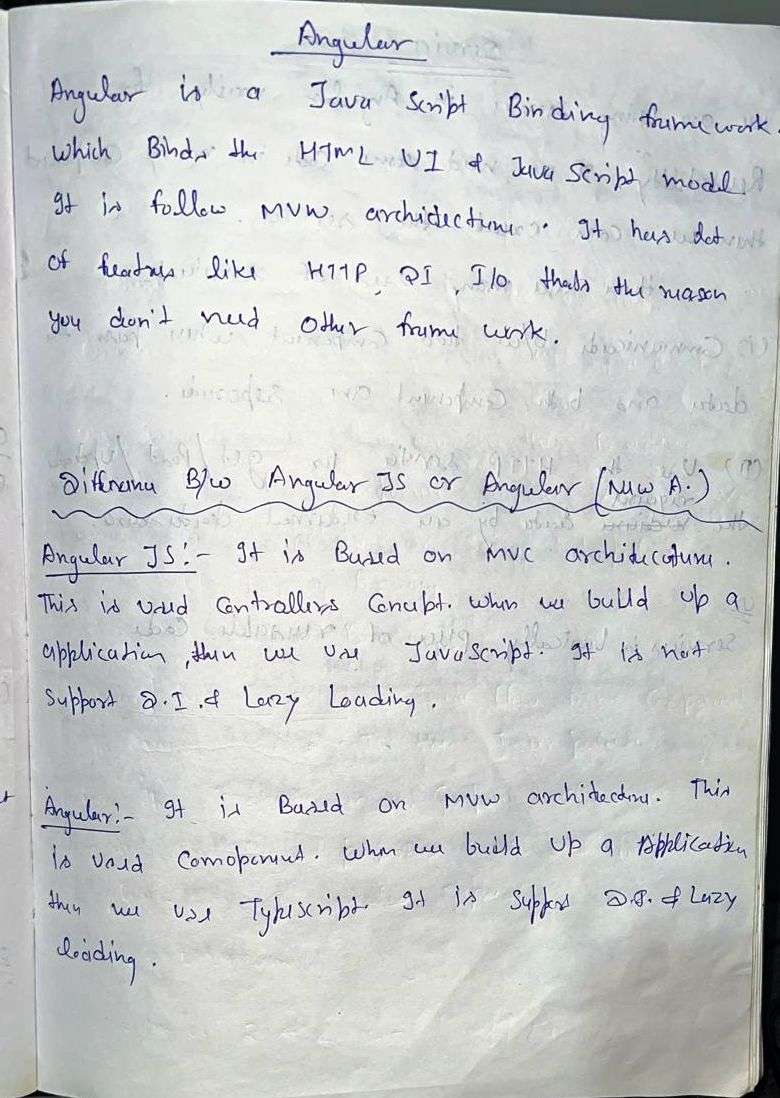 Angular
Angular is a Java Script Binding frame work
which Binds the HTML UI & Java Script model.
It is follow MVW archidecture. It has lot
of featrus like HTTP, DI, I/O thats the reason
you don't need other frame work.
Differance B/w Angular JS or Angular (New A.)
Angular JS:- It is Based on MVC architecature.
This is used Controllers Concept. When we build up a
application, then we use JavaScript. It is not
Support D.I. & Lazy Loading.
Angular:- It is Based on MVW architecture. This
is used Comoponent. When we build up a Application
then we use Typescript. It is Support D.I. & Lazy
loading.